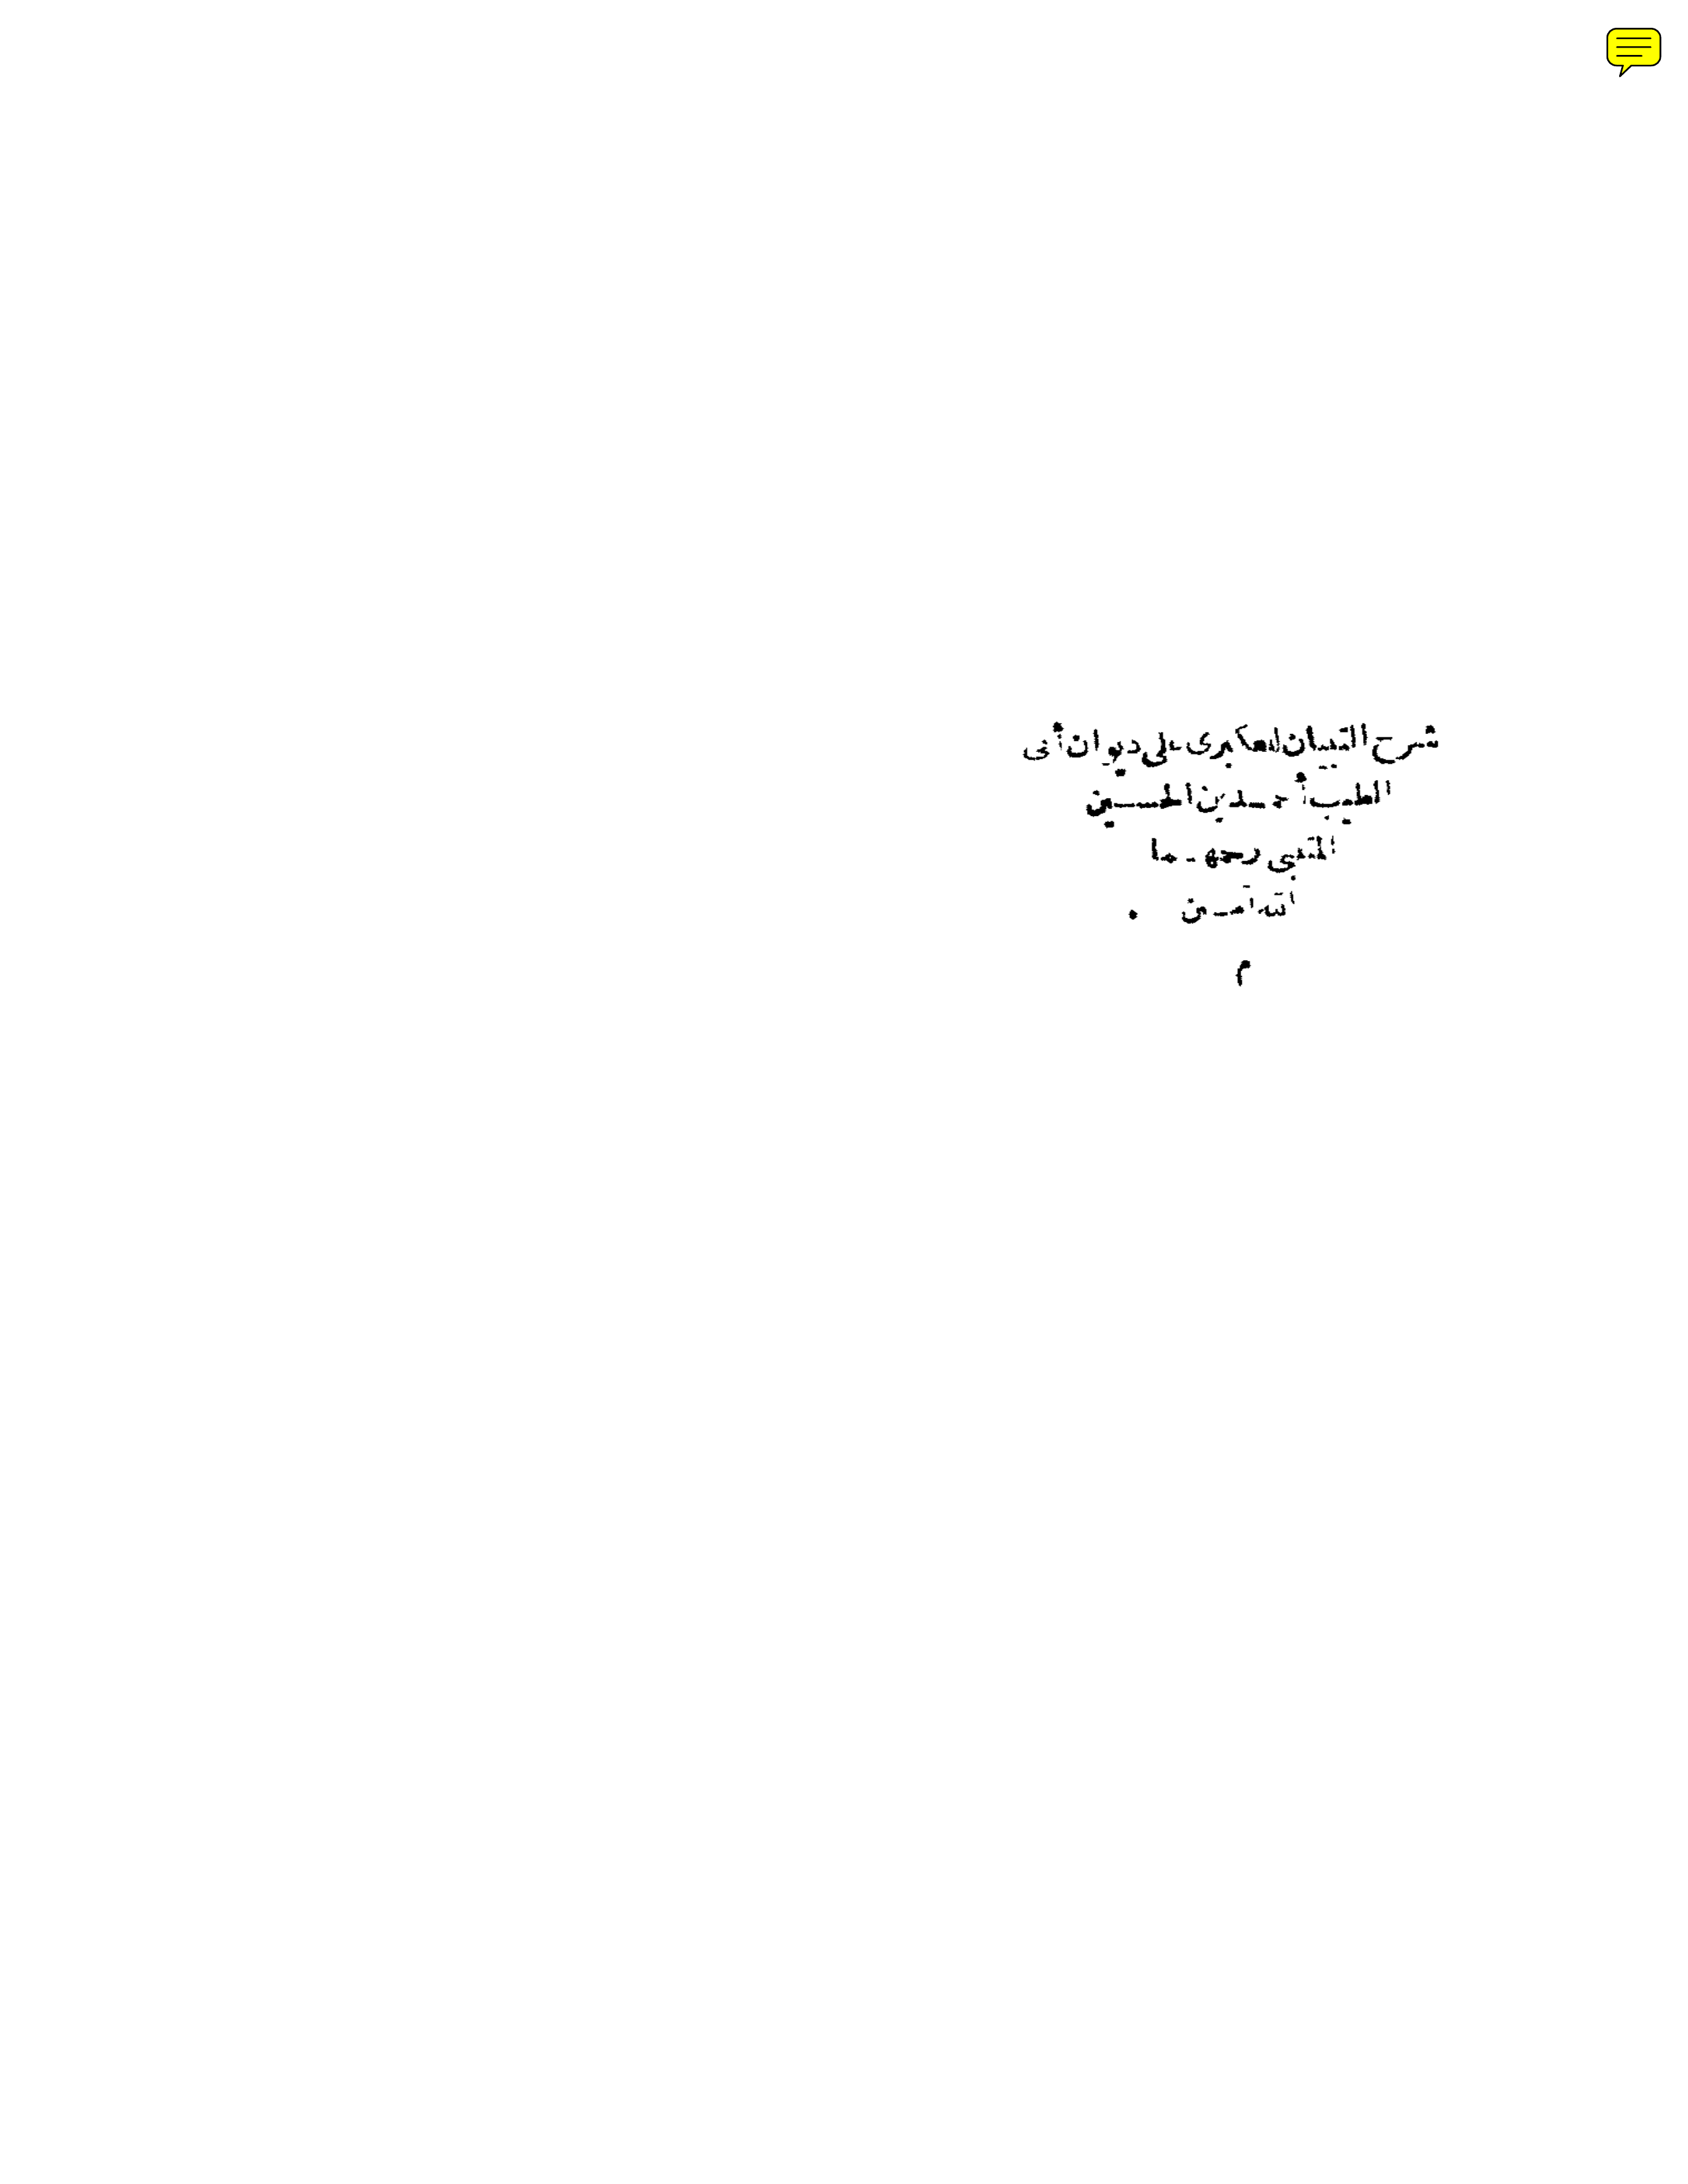 شرح التبيان للعكبرى على ديوان أبى
الطيب أحمد بن الحسين
المتنبى رحمهما
الله آمين
م